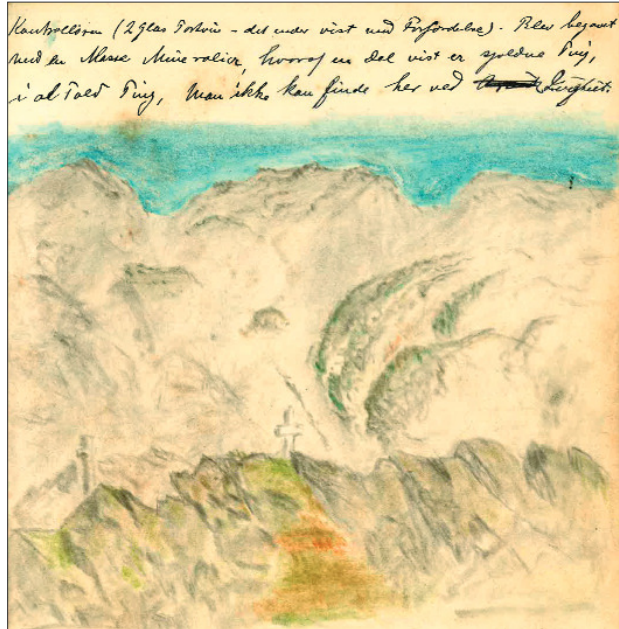 Kontrolløren (2 Glas Portvin – det ender vist med Forfordelse). Blev begavet
med en Masse Mineralier, hvoraf en Del vist er sjeldne Ting,
i al Fald Ting, man ikke kan finde her ved Ivigtut.